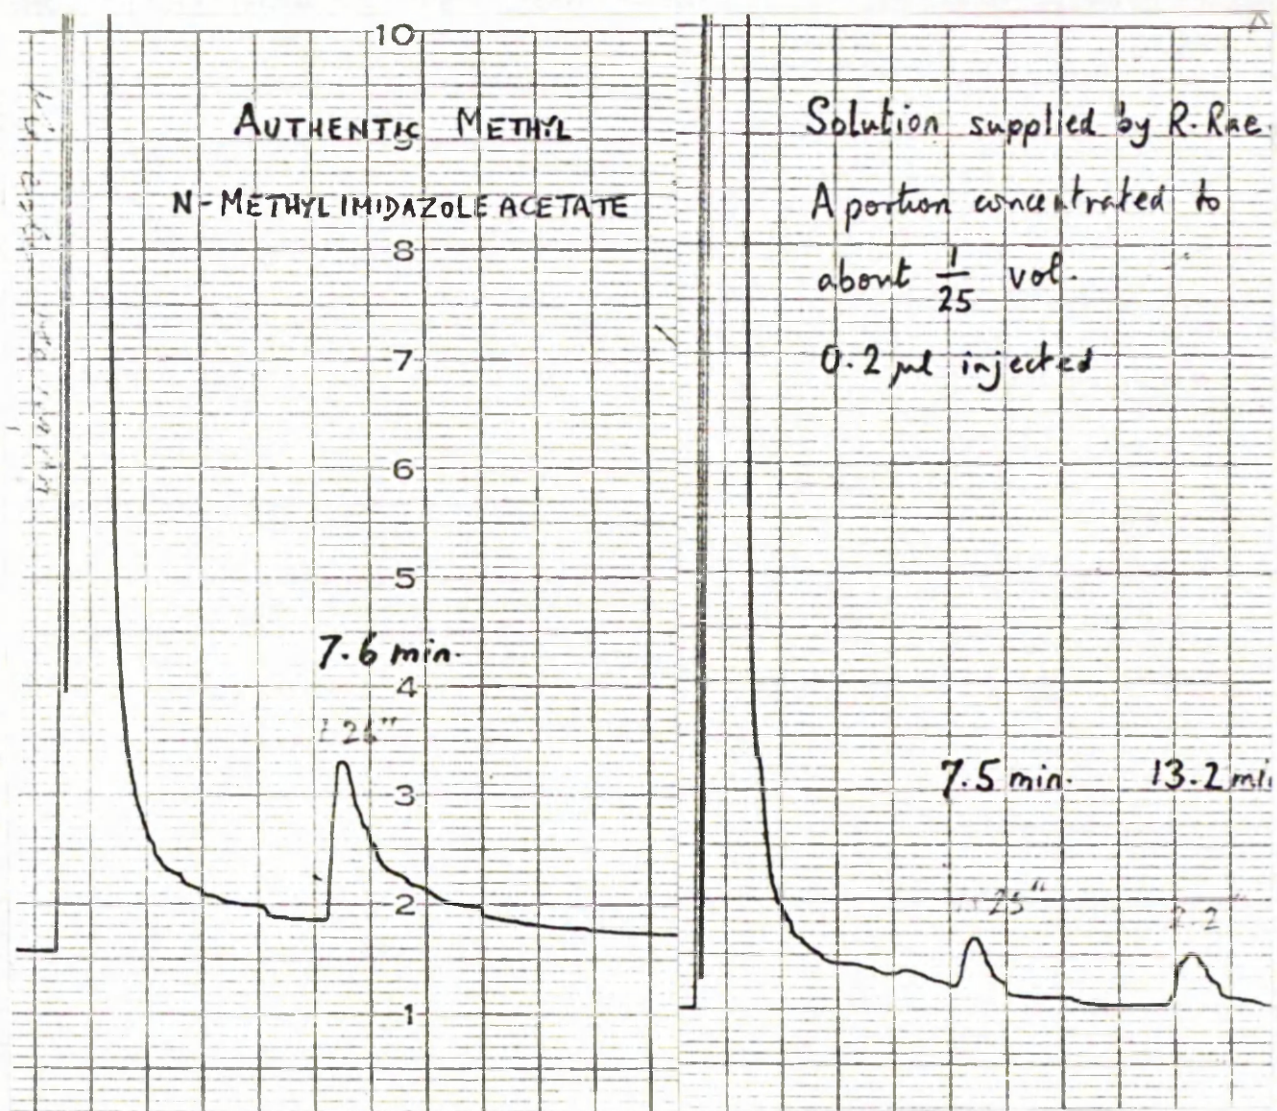 10
AUTHENTIC METHYL
9
N-METHYLIMIDAZOLE ACETATE
8
7
6
5
7.6 min.
4
26"
3
2
1
Solution supplied by R. Rae.
A portion concentrated to
about 1/25 vol.
0.2 µl injected
7.5 min. 13.2 mi
25" 2.2"